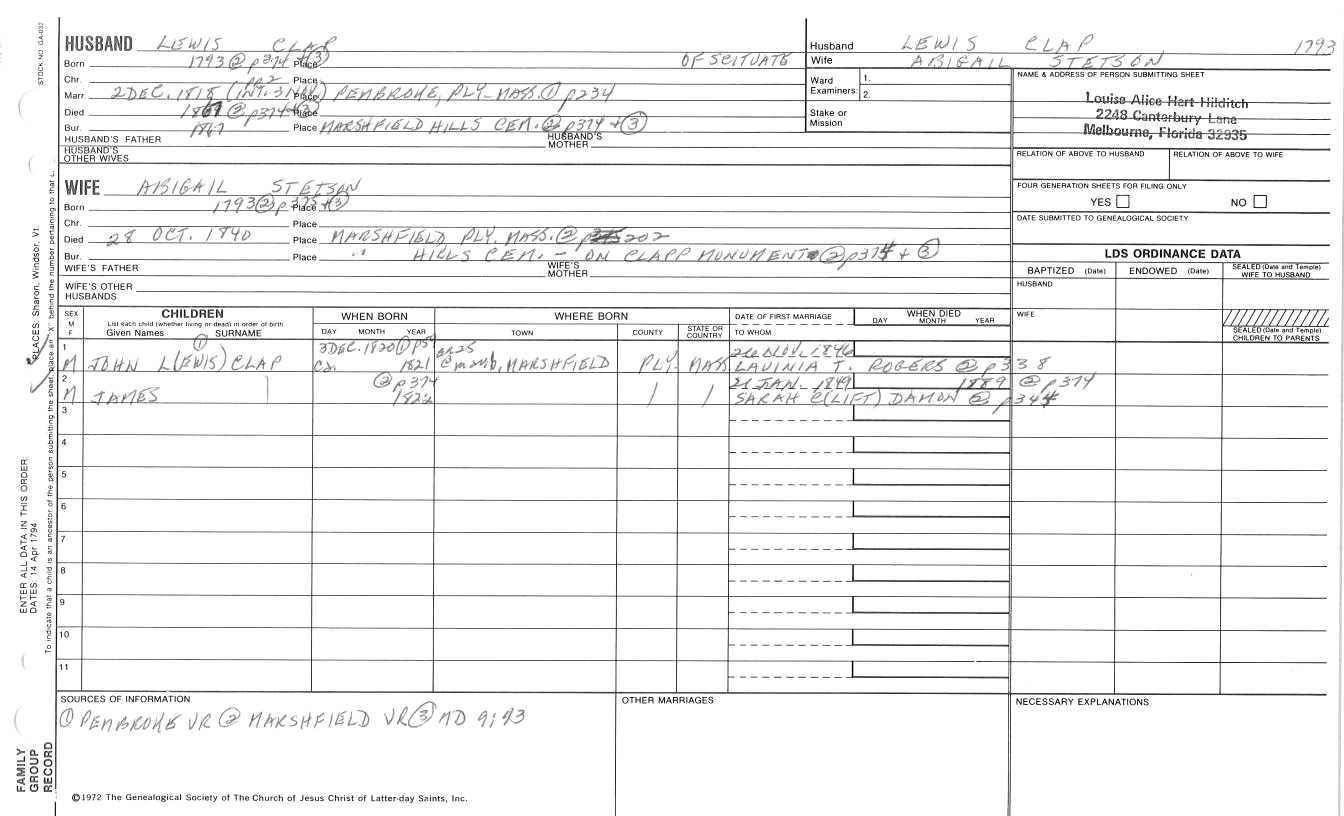 STOCK NO. GA-032
HUSBAND LEWIS CLAP
Born 1793 @ p374 + (3) Place OF SCITUATE
Chr. Place
Marr. 2 DEC. 1818 (INT. 3 NOV.) Place PEMBROKE, PLY. MASS. ① p234
Died 1867 ② p374 + ③ Place
Bur. 1867 Place MARSHFIELD HILLS CEM. ② p374 + ③
HUSBAND'S FATHER HUSBAND'S MOTHER
HUSBAND'S OTHER WIVES
WIFE ABIGAIL STETSON
Born 1793 ② p375 + ③ Place
Chr. Place
Died 28 OCT. 1840 Place MARSHFIELD, PLY. MASS. ② 202
Bur. Place " HILLS CEM. - ON CLAPP MONUMENT ② p374 + ③
WIFE'S FATHER WIFE'S MOTHER
WIFE'S OTHER HUSBANDS
Husband LEWIS CLAP 1793
Wife ABIGAIL STETSON
Ward Examiners: 1.
2.
Stake or Mission
NAME & ADDRESS OF PERSON SUBMITTING SHEET
Louise Alice Hart Hilditch
2248 Canterbury Lane
Melbourne, Florida 32935
RELATION OF ABOVE TO HUSBAND RELATION OF ABOVE TO WIFE
FOUR GENERATION SHEETS FOR FILING ONLY
YES NO
DATE SUBMITTED TO GENEALOGICAL SOCIETY
LDS ORDINANCE DATA
BAPTIZED (Date) ENDOWED (Date) SEALED (Date and Temple) WIFE TO HUSBAND
HUSBAND
WIFE
SEALED (Date and Temple) CHILDREN TO PARENTS
SEX M F CHILDREN WHEN BORN WHERE BORN DATE OF FIRST MARRIAGE WHEN DIED
List each child (whether living or dead) in order of birth
Given Names SURNAME DAY MONTH YEAR TOWN COUNTY STATE OR COUNTRY TO WHOM DAY MONTH YEAR
1 3 DEC. 1820 ① p54 or 25 NOV. 1846
M JOHN L(EWIS) ① CLAP ca. 1821 MARSHFIELD PLY. MASS LAVINIA T. ROGERS ② p338
2 ② p374 21 JAN. 1849 1889 @ p374
M JAMES 1822 SARAH C(LIFT) DAMON ② p344
3
4
5
6
7
8
9
10
11
SOURCES OF INFORMATION OTHER MARRIAGES NECESSARY EXPLANATIONS
① PEMBROKE VR ② MARSHFIELD VR ③ MD 9:93
©1972 The Genealogical Society of The Church of Jesus Christ of Latter-day Saints, Inc.
FAMILY GROUP RECORD
ENTER ALL DATA IN THIS ORDER
DATES: 14 Apr 1794
PLACES: Sharon, Windsor, Vt.
To indicate that a child is an ancestor of the person submitting the sheet, place an "X" behind the number pertaining to that